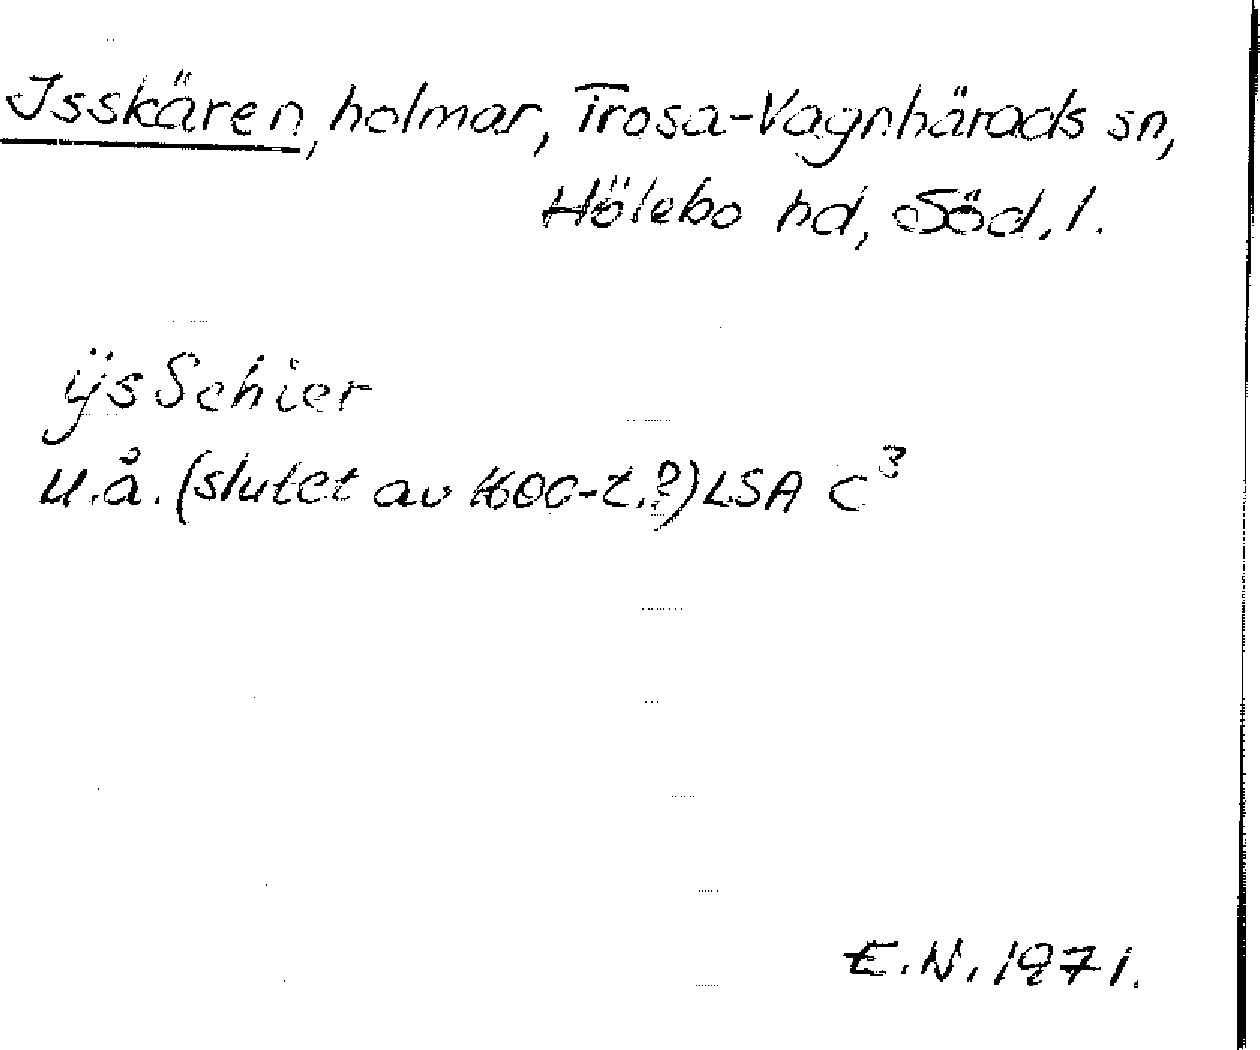 Isskären, holmar, Trosa-Vagnhärads sn,
Hölebo hd, Söd. l.
ÿs Schier
u.å. (slutet av 1600-t.?) LSA C³
E.N. 1971.